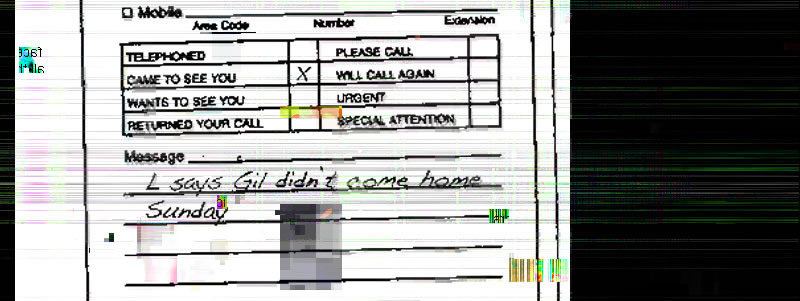 ☐ Mobile
Area Code Number Extension
TELEPHONED PLEASE CALL
CAME TO SEE YOU X WILL CALL AGAIN
WANTS TO SEE YOU URGENT
RETURNED YOUR CALL SPECIAL ATTENTION
Message
L says Gil didn't come home
Sunday